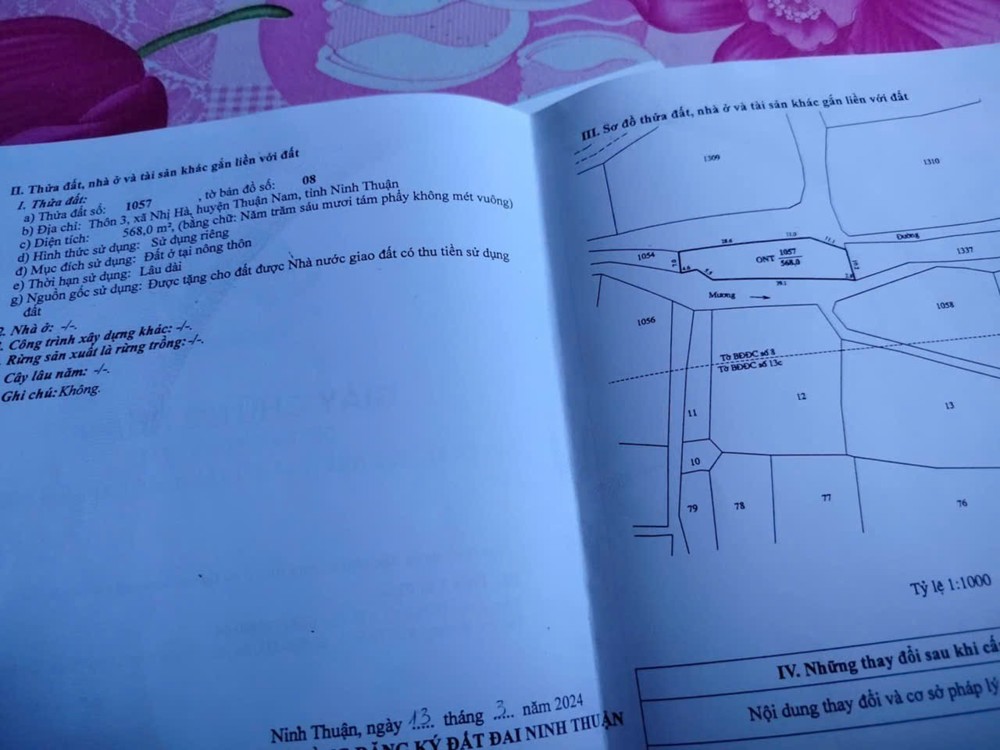 II. Thửa đất, nhà ở và tài sản khác gắn liền với đất
1. Thửa đất:
a) Thửa đất số: 1057 , tờ bản đồ số: 08
b) Địa chỉ: Thôn 3, xã Nhị Hà, huyện Thuận Nam, tỉnh Ninh Thuận
c) Diện tích: 568,0 m², (bằng chữ: Năm trăm sáu mươi tám phẩy không mét vuông)
d) Hình thức sử dụng: Sử dụng riêng
đ) Mục đích sử dụng: Đất ở tại nông thôn
e) Thời hạn sử dụng: Lâu dài
g) Nguồn gốc sử dụng: Được tặng cho đất được Nhà nước giao đất có thu tiền sử dụng
đất
2. Nhà ở: -/-.
. Công trình xây dựng khác: -/-.
Rừng sản xuất là rừng trồng: -/-.
Cây lâu năm: -/-.
Ghi chú: Không.
Ninh Thuận, ngày 13 tháng 3 năm 2024
ĐĂNG KÝ ĐẤT ĐAI NINH THUẬN
III. Sơ đồ thửa đất, nhà ở và tài sản khác gắn liền với đất
1309
1310
Đường
1054
ONT 1057
568,0
1337
Mương
1056
1058
Tờ BĐĐC số 8
Tờ BĐĐC số 13c
12
13
11
10
79
78
77
76
Tỷ lệ 1:1000
IV. Những thay đổi sau khi cấ
Nội dung thay đổi và cơ sở pháp lý